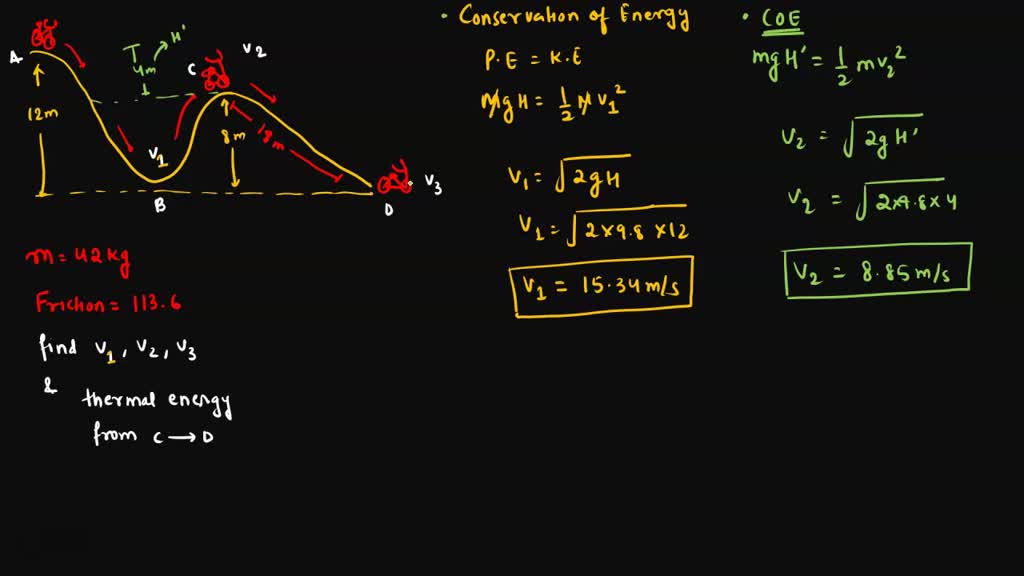 A
12m
T
4m
H'
C
V2
8m
18m
V1
B
V3
D
m = 42 kg
Friction = 113.6
find V1, V2, V3
&
thermal energy
from C → D
• Conservation of Energy
P.E = K.E
mgH = 1/2 m V1²
V1 = √2gH
V1 = √2×9.8×12
V1 = 15.34 m/s
• COE
mgH' = 1/2 mv2²
V2 = √2gH'
V2 = √2×9.8×4
V2 = 8.85 m/s